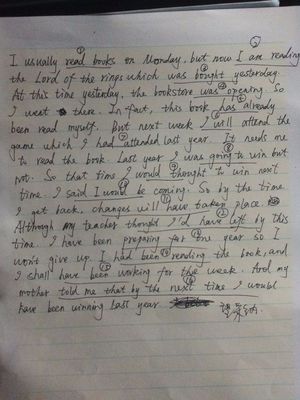 I usually read books on Monday, but now I am rending
the Lord of the rings which was bought yesterday.
At this time yesterday, the bookstore was opening. So
I went there. In fact, this book has already
been read myself. But next week I will attend the
game which I had attended last year. It needs me
to read the book. Last year I was going to win but
not. So that time I would thought to win next
time. I said I would be coming. So by the time
I get back, changes will have taken place.
Although my teacher thought I'd have left by this
time. I have been preparing for one year so I
won't give up. I had been rending the book, and
I shall have been working for this week. And my
mother told me that by the next time I would
have been winning last year